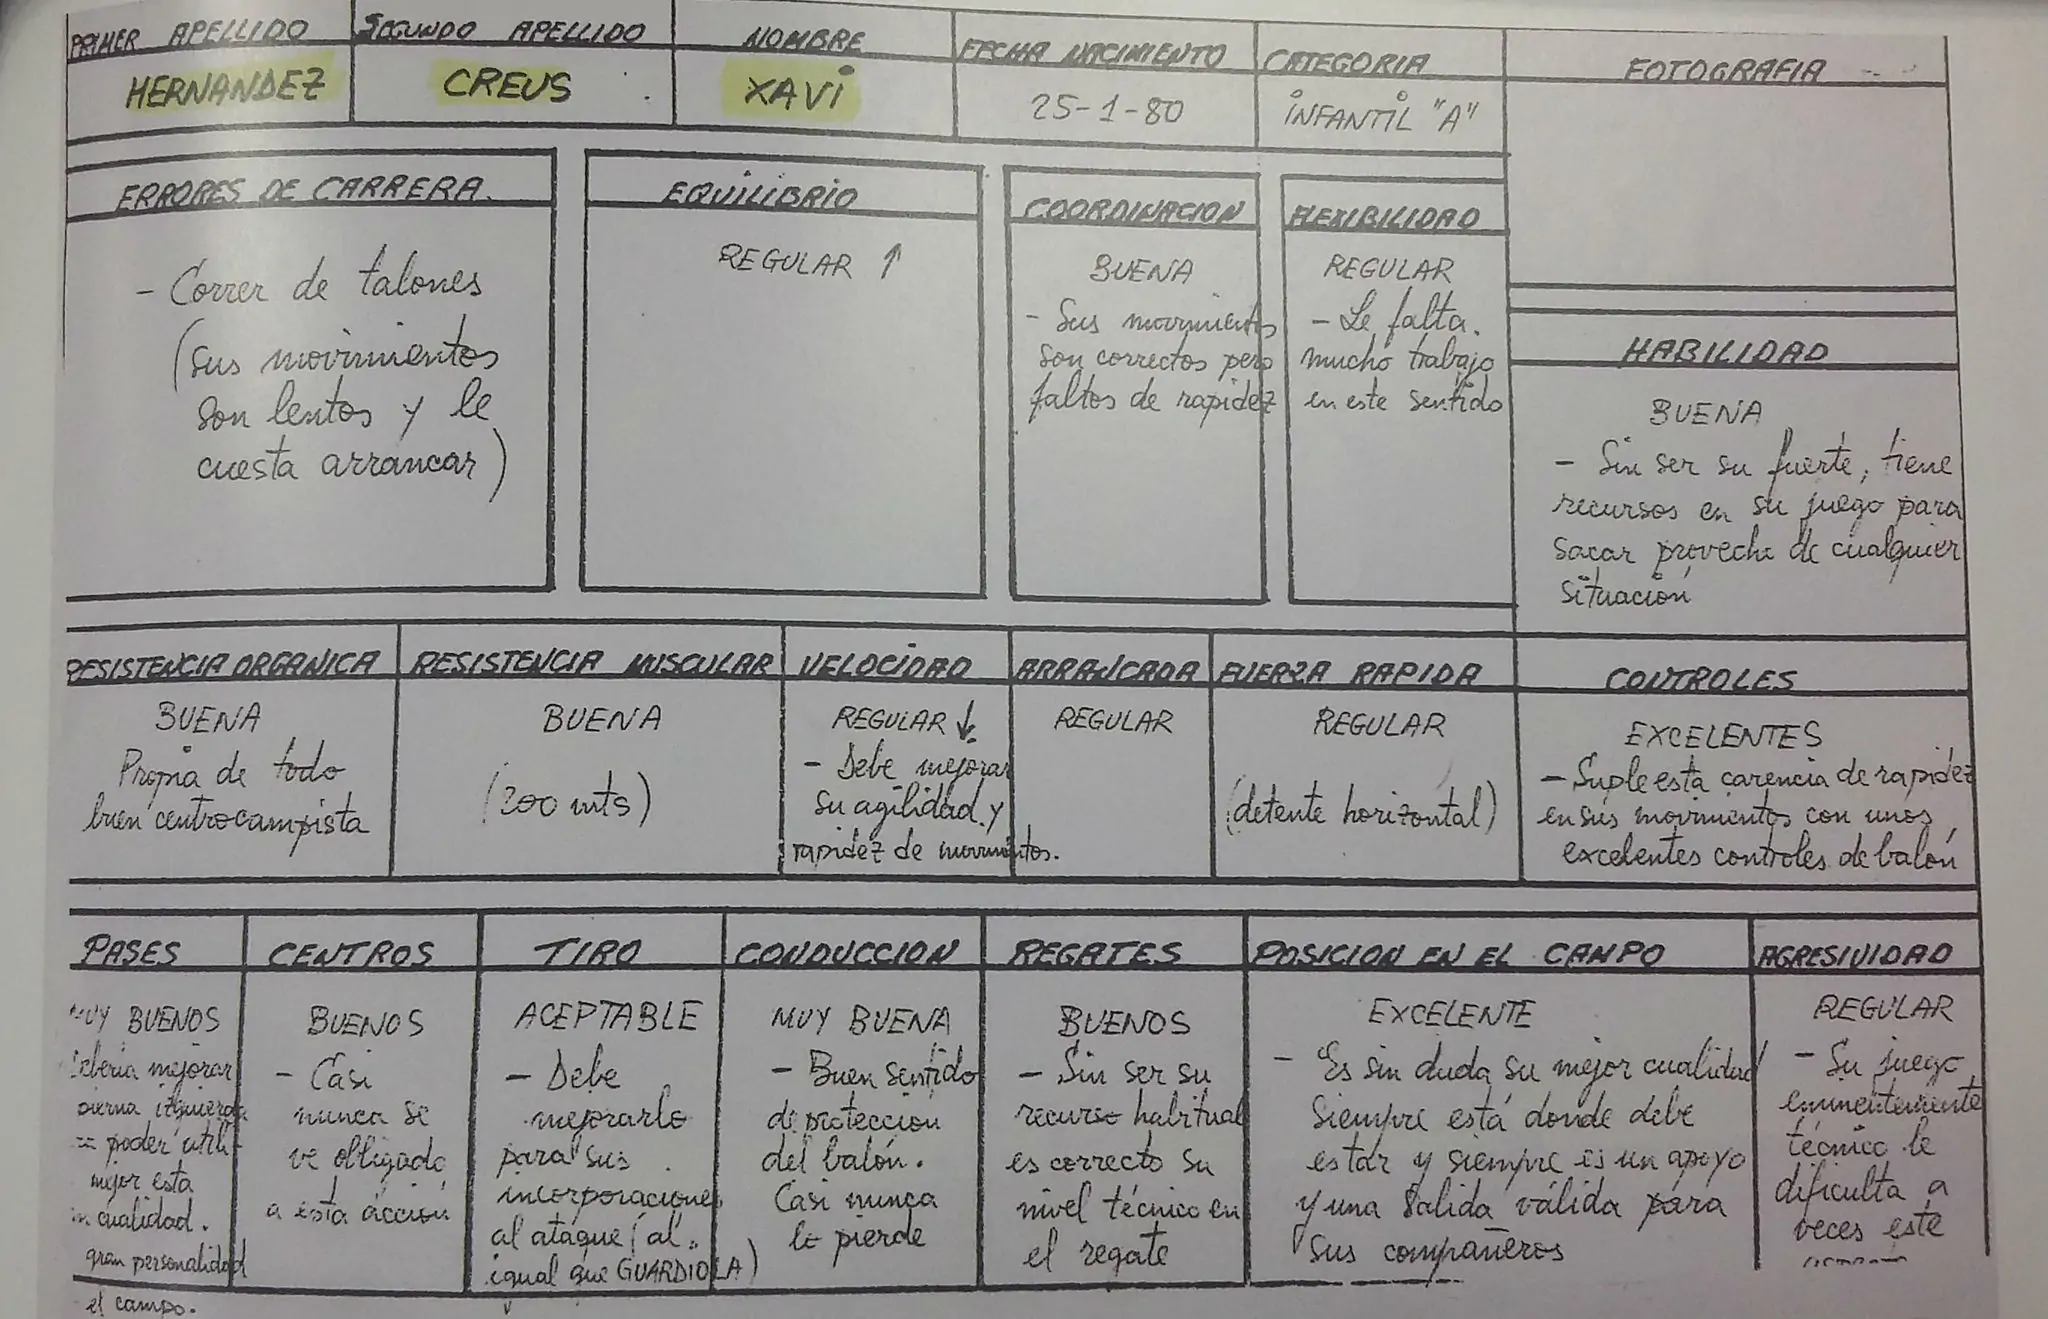 PRIMER APELLIDO
HERNANDEZ
SEGUNDO APELLIDO
CREUS
NOMBRE
XAVI
FECHA NACIMIENTO
25-1-80
CATEGORIA
INFANTIL "A"
FOTOGRAFIA
ERRORES DE CARRERA.
- Correr de talones
(sus movimientos
son lentos y le
cuesta arrancar)
EQUILIBRIO
REGULAR ↑
COORDINACION
BUENA
- Sus movimientos
son correctos pero
faltos de rapidez
FLEXIBILIDAD
REGULAR
- Le falta
mucho trabajo
en este sentido
HABILIDAD
BUENA
- Sin ser su fuerte, tiene
recursos en su juego para
sacar provecho de cualquier
situación
RESISTENCIA ORGANICA
BUENA
Propia de todo
buen centrocampista
RESISTENCIA MUSCULAR
BUENA
(200 mts)
VELOCIDAD
REGULAR ↓
- Debe mejorar
su agilidad y
rapidez de movimientos.
ARRANCADA
REGULAR
FUERZA RAPIDA
REGULAR
(detente horizontal)
CONTROLES
EXCELENTES
- Suple esta carencia de rapidez
en sus movimientos con unos
excelentes controles de balón
PASES
MUY BUENOS
Debería mejorar
pierna izquierda
poder utili-
mejor esta
cualidad.
gran personalidad
el campo.
CENTROS
BUENOS
- Casi
nunca se
ve obligado
a esta acción
TIRO
ACEPTABLE
- Debe
mejorarlo
para sus
incorporaciones
al ataque (al
igual que GUARDIOLA)
CONDUCCION
MUY BUENA
- Buen sentido
de protección
del balón.
Casi nunca
lo pierde
REGATES
BUENOS
- Sin ser su
recurso habitual
es correcto su
nivel técnico en
el regate
POSICION EN EL CAMPO
EXCELENTE
- Es sin duda su mejor cualidad
Siempre está donde debe
estar y siempre es un apoyo
y una salida válida para
sus compañeros
AGRESIVIDAD
REGULAR
- Su juego
eminentemente
técnico le
dificulta a
veces este